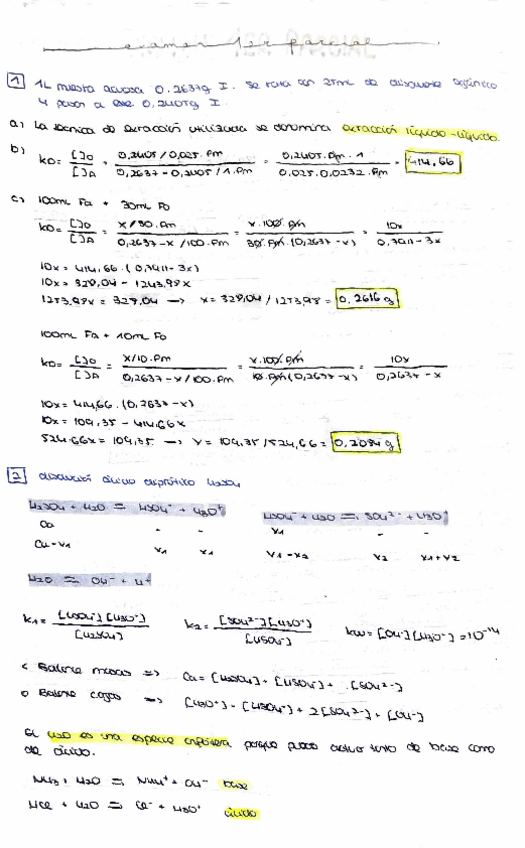 examen 1er parcial
1 1L muestra acuosa 0.2637g I. Se trata con 25mL de disolvente orgánico
y pasan a ese 0,2405g I
a) La técnica de extracción utilizada se denomina extracción líquido-líquido.
b) KD = [ ]O / [ ]A = 0,2405 / 0,025 . Pm / 0,2637 - 0,2405 / 1 . Pm = 0,2405 . Pm . 1 / 0,025 . 0,0232 . Pm = 414,66
c) 100mL Fa + 30mL Fo
KD = [ ]O / [ ]A = x / 30 . Pm / 0,2637 - x / 100 . Pm = x . 100 . Pm / 30 . Pm . (0,2637 - x) = 10x / 0,7911 - 3x
10x = 414,66 . (0,7911 - 3x)
10x = 328,04 - 1243,98x
1253,98x = 328,04 → x = 328,04 / 1253,98 = 0,2616 g
100mL Fa + 10mL Fo
KD = [ ]O / [ ]A = x / 10 . Pm / 0,2637 - x / 100 . Pm = x . 100 . Pm / 10 . Pm (0,2637 - x) = 10x / 0,2637 - x
10x = 414,66 . (0,2637 - x)
10x = 109,35 - 414,66x
524,66x = 109,35 → x = 109,35 / 524,66 = 0,2084 g
2 disolución ácido diprótico H2SO4
H2SO4 + H2O ⇌ HSO4⁻ + H3O⁺ HSO4⁻ + H2O ⇌ SO4²⁻ + H3O⁺
Ca - - x1 - -
Ca - x1 x1 x1 x1 - x2 x2 x1 + x2
H2O ⇌ OH⁻ + H⁺
K1 = [HSO4⁻] [H3O⁺] / [H2SO4] K2 = [SO4²⁻] [H3O⁺] / [HSO4⁻] Kw = [OH⁻] [H3O⁺] = 10⁻¹⁴
Balance masas ⇒ Ca = [H2SO4] + [HSO4⁻] + [SO4²⁻]
Balance cargas ⇒ [H3O⁺] = [HSO4⁻] + 2[SO4²⁻] + [OH⁻]
El H2O es una especie anfótera porque puede actuar tanto de base como
de ácido.
NH3 + H2O ⇌ NH4⁺ + OH⁻ base
HCl + H2O ⇌ Cl⁻ + H3O⁺ ácido